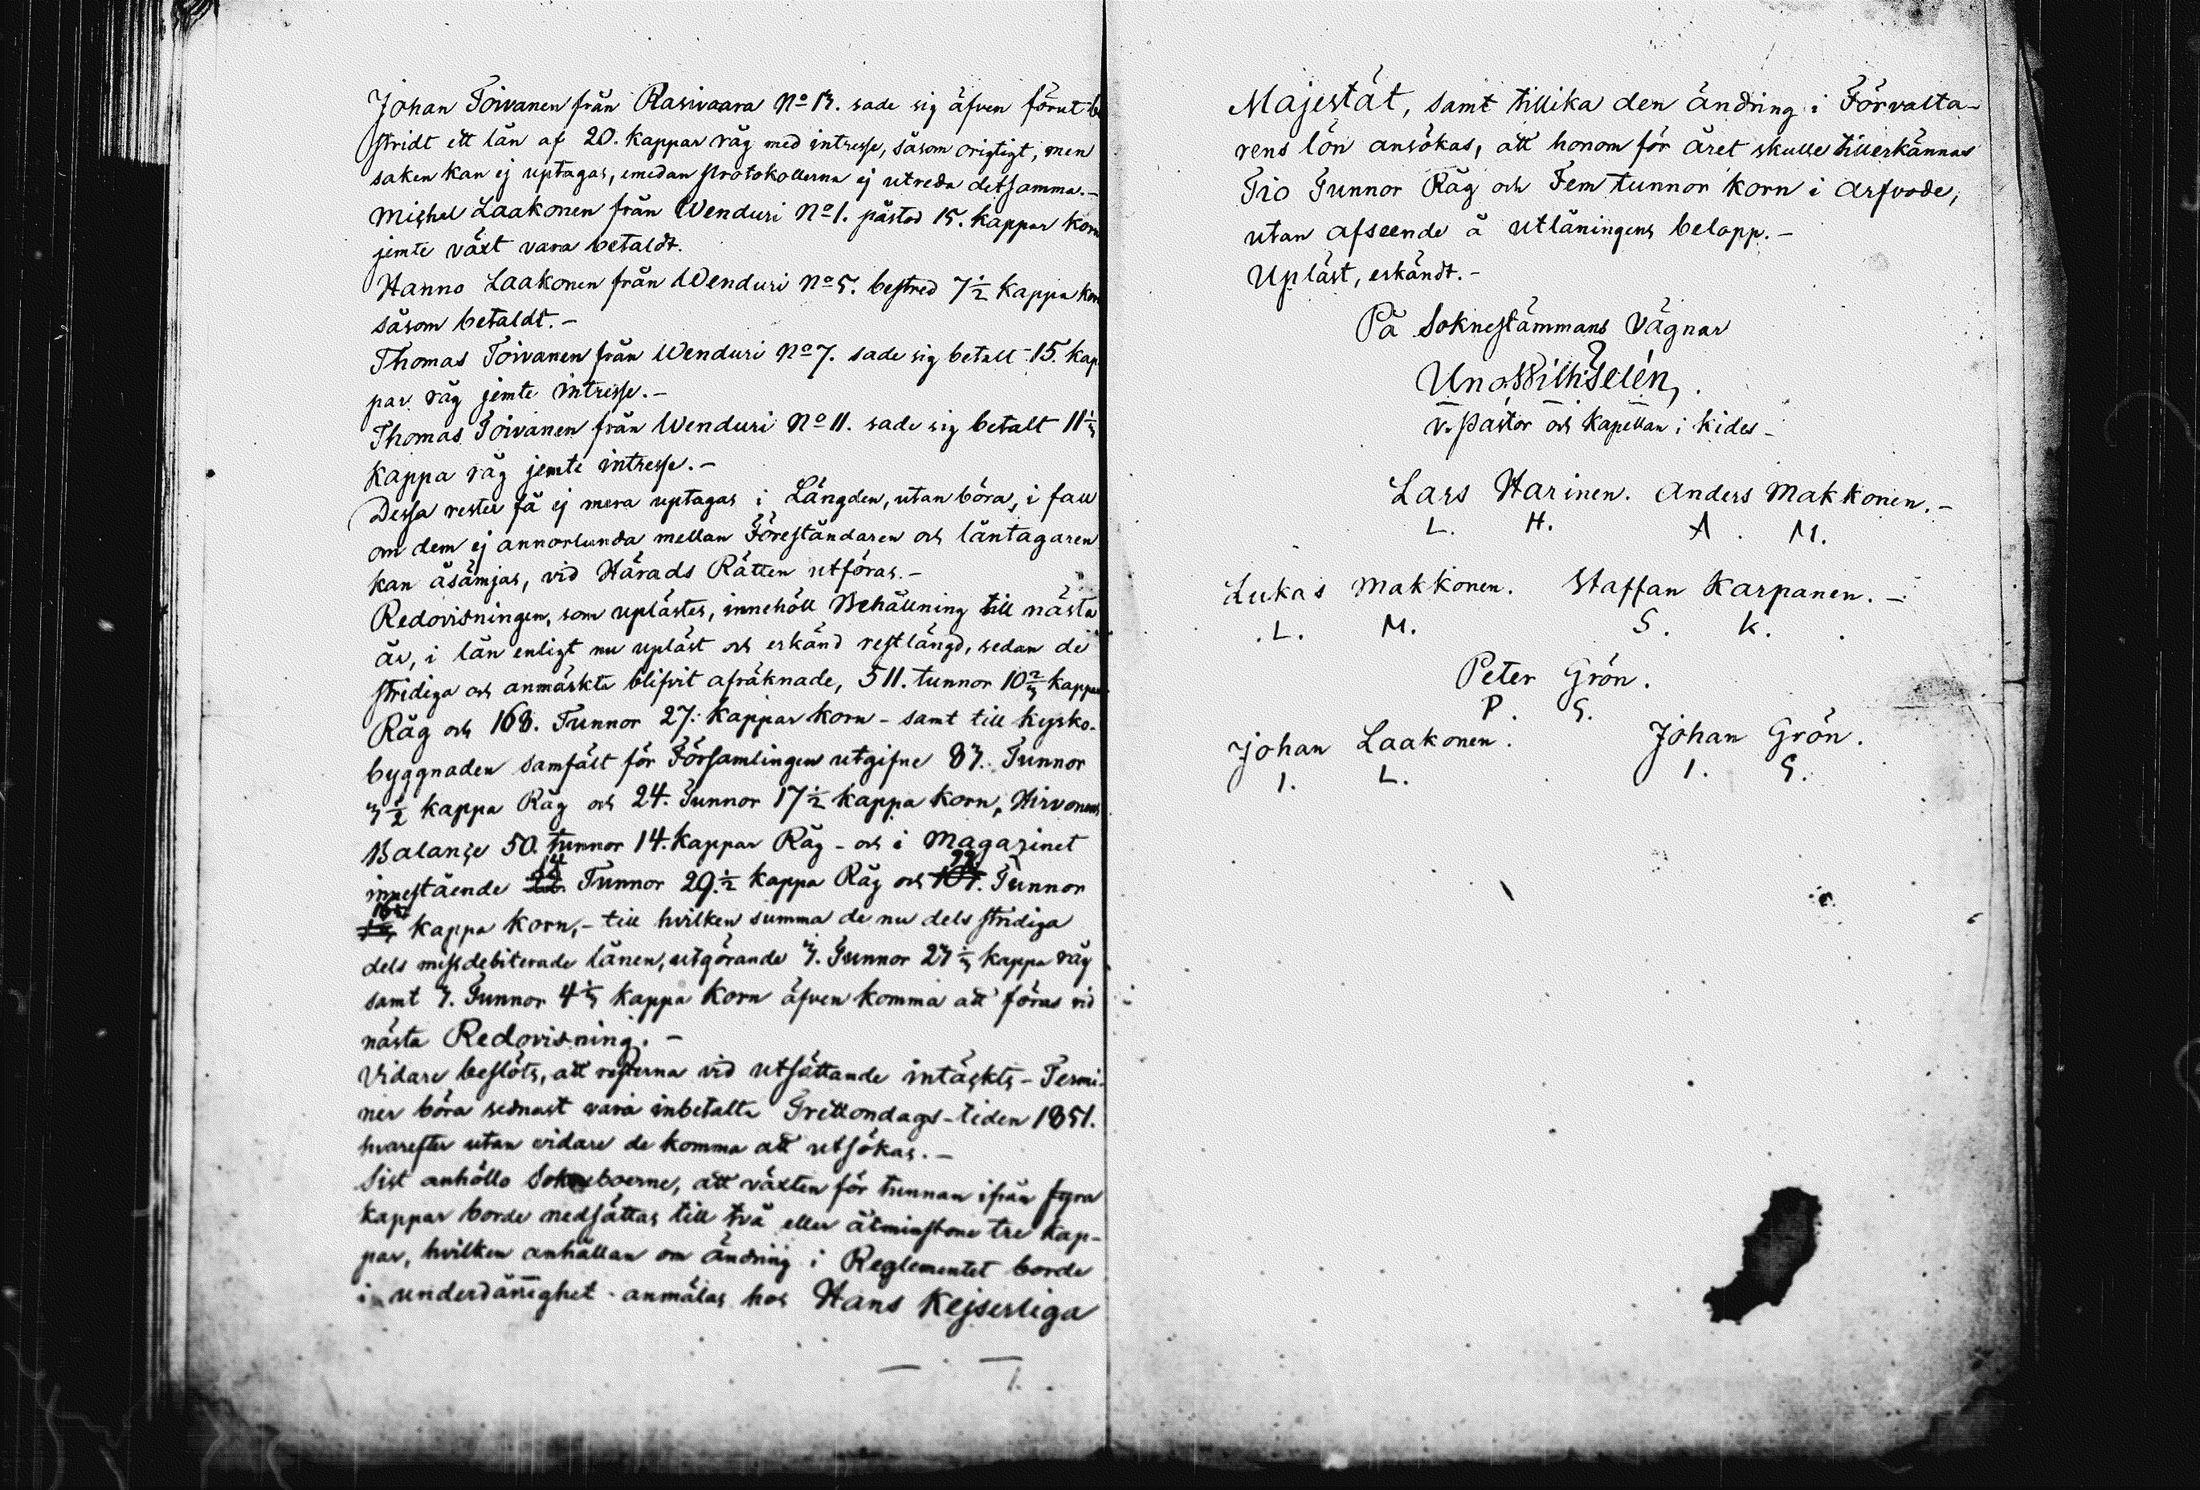 Johan Toivanen från Rasivaara No 13. sade sig äfven förut be
stridt ett lån af 20. kappar råg med intresse, såsom origtigt, men
saken kan ej uptagas, emedan protokollerna ej utreda detsamma.-
Michel Laakonen från Wenduri No 1. påstod 15. kappar korn
jemte växt vara betaldt.
Hanno Laakonen från Wenduri No 5. bestred 7 1/2 kappa korn
såsom betaldt.-
Thomas Toivanen från Wenduri No 7. sade sig betalt 15. kap
par råg jemte intresse.-
Thomas Toivanen från Wenduri No 11. sade sig betalt 11 1/3
kappa råg jemte intresse.-
Dessa rester få ej mera uptagas i Längden, utan böra, i fall
om dem ej annorlunda mellan Föreståndaren och låntagaren
kan åsämjas, vid Härads Rätten utföras.-
Redovisningen, som uplästes, innehöll Behållning till nästa
år, i lån enligt nu upläst och erkänd restlängd, sedan de
stridiga och anmärkta blifvit afräknade, 511. tunnor 10 2/3 kappar
Råg och 168. Tunnor 27. kappar korn - samt till kyrko-
byggnaden samfält för Församlingen utgifne 83. Tunnor
3 1/2 kappa Råg och 24. Tunnor 17 1/2 kappa korn, Hirvonens
Balançe 50. tunnor 14. kappar Råg - och i Magazinet
innestående Tunnor 29 1/2 kappa Råg och Tunnor
kappa korn,- till hvilken summa de nu dels stridiga
dels missdebiterade lånen, utgörande 3. Tunnor 23 1/3 kappa råg
samt 3. Tunnor 4 1/3 kappa korn äfven komma att föras vid
nästa Redovisning.-
Vidare beslöts, att resterna vid utsättande intäckts-Termi-
ner böra sednast vara inbetalta Trettondags-tiden 1851.
hvarefter utan vidare de komma att utsökas.-
Sist anhöllo Sokneboerne, att växten för tunnan ifrån fyra
kappar borde nedsättas till två eller åtminstone tre kap-
par, hvilken anhållan om ändring i Reglementet borde
i underdånighet anmälas hos Hans Kejserliga
Majestät, samt tillika den ändring i Förvalta-
rens lön ansökas, att honom för året skulle tillerkännas
Tio Tunnor Råg och Fem tunnor korn i arfvode,
utan afseende å utlåningens belopp.-
Upläst, erkändt.-
På Soknestämmans vägnar
Uno Wilh: Selén,
v. Pastor och Kapellan i Kides-
Lars Harinen. Anders Makkonen.-
L. H. A. M.
Lukas Makkonen. Staffan Karpanen.-
L. M. S. K.
Peter Grön.
P. G.
Johan Laakonen. Johan Grön.
I. L. I. G.